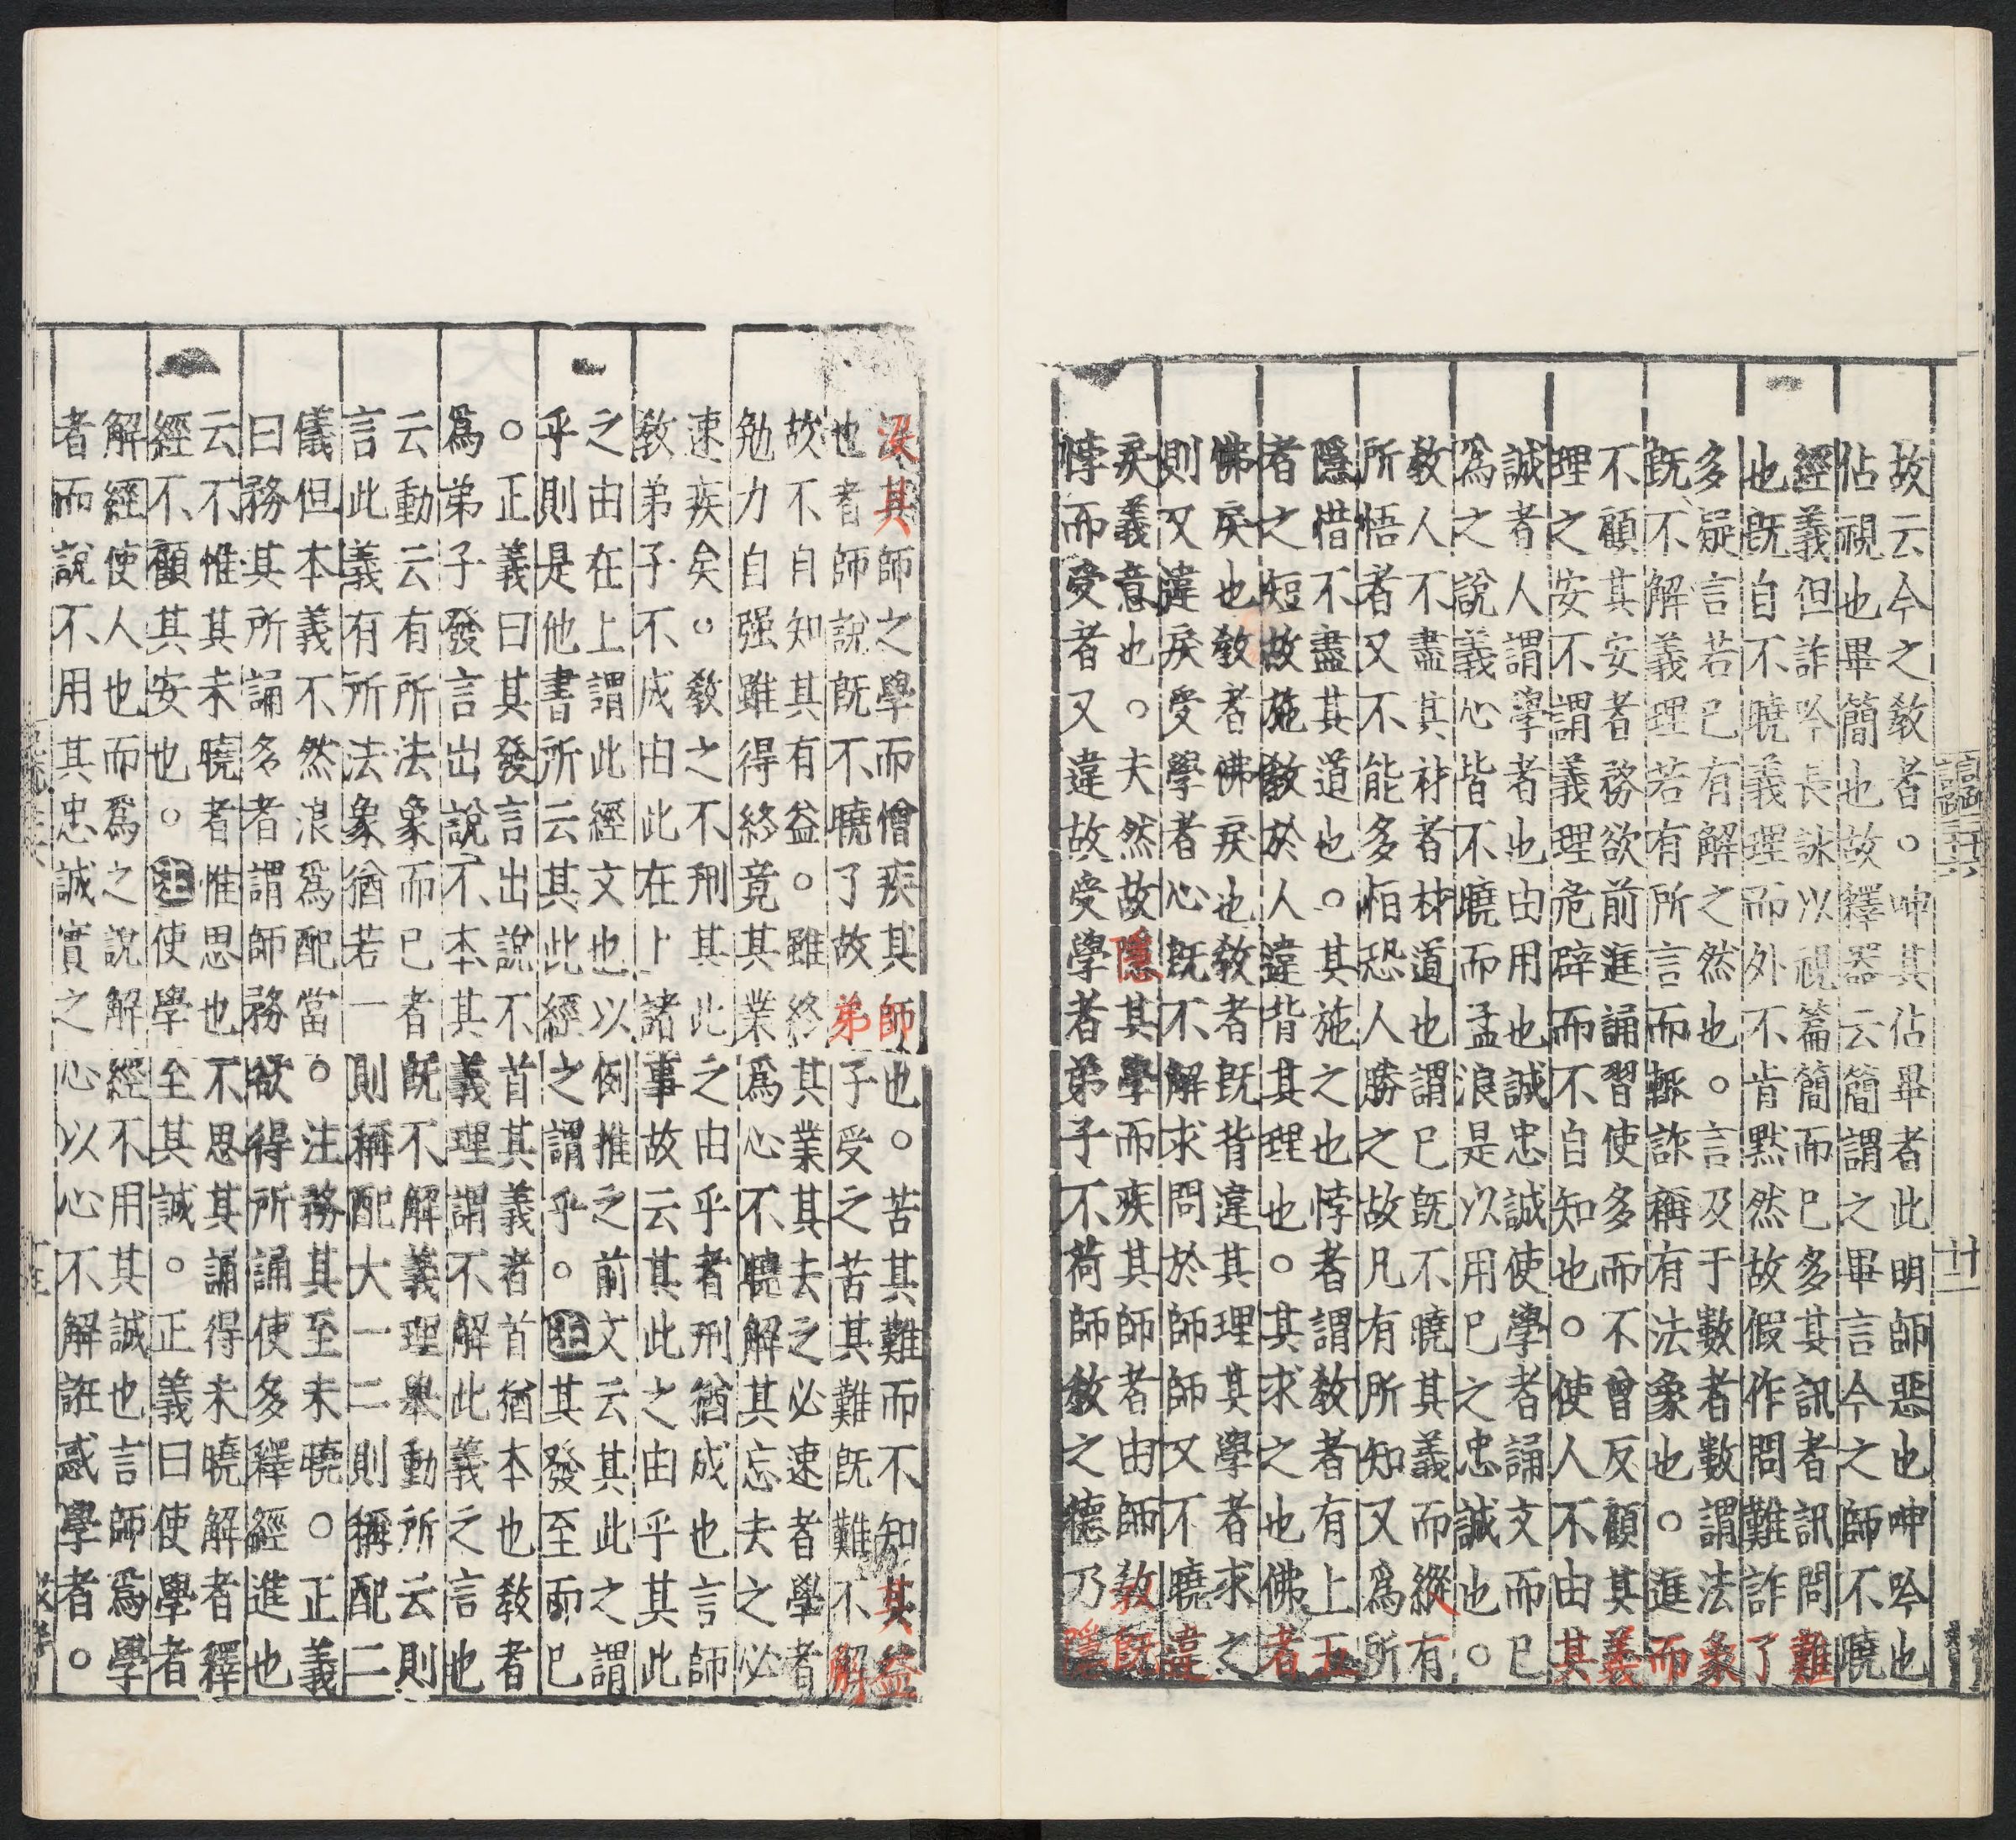 故云今之敎者○呻其佔畢者此明師惡也呻吟也
佔視也畢簡也故釋器云簡謂之畢言今之師不曉
經義但詐吟長詠以視篇簡而已多其訊者訊問難
也既自不曉義理而外不肯默然故假作問難詐了
多疑言若已有解之然也○言及于數者數謂法象
既不解義理若有所言而輒詐稱有法象也○進而
不顧其安者務欲前進誦習使多而不曾反顧其義
理之安不謂義理危辟而不自知也○使人不由其
誠者人謂學者也由用也誠忠誠使學者誦文而已
爲之說義心皆不曉而孟浪是以用已之忠誠也○
敎人不盡其材者材道也謂已既不曉其義而縱有
所悟者又不能多怕恐人勝之故凡有所知又爲所
隱惜不盡其道也○其施之也悖者謂敎者有上五
者之短故施敎於人違背其理也○其求之也佛者
佛戾也敎者佛戾也敎者既背違其理其學者求之
則又違戾受學者心既不解求問於師師又不曉違
戾義意也○夫然故隱其學而疾其師者由師敎既
悖而受者又違故受學者弟子不荷師敎之德乃隱
沒其師之學而憎疾其師也○苦其難而不知其益
也者師說既不曉了故弟子受之苦其難既難不解
故不自知其有益○雖終其業其去之必速者學者
勉力自强雖得終竟其業爲心不曉解其忘夫之必
速疾矣○敎之不刑其此之由乎者刑猶成也言師
敎弟子不成由此在上諸事故云其此之由乎其此
之由在上謂此經文也以例推之前文云其此之謂
乎則是他書所云其此經之謂乎○注其發至而已
○正義曰其發言出說不首其義者首猶本也敎者
爲弟子發言出說不本其義理謂不解此義之言也
云動云有所法象而已者既不解義理舉動所云則
言此義有所法象猶若一則稱配大一二則稱配二
儀但本義不然浪爲配當○注務其至未曉○正義
曰務其所誦多者謂師務欲得所誦使多釋經進也
云不惟其未曉者惟思也不思其誦得未曉解者釋
經不顧其安也○注使學至其誠○正義曰使學者
解經使人也而爲之說解經不用其誠也言師爲學
者而說不用其忠誠實之心以心不解誑惑學者○